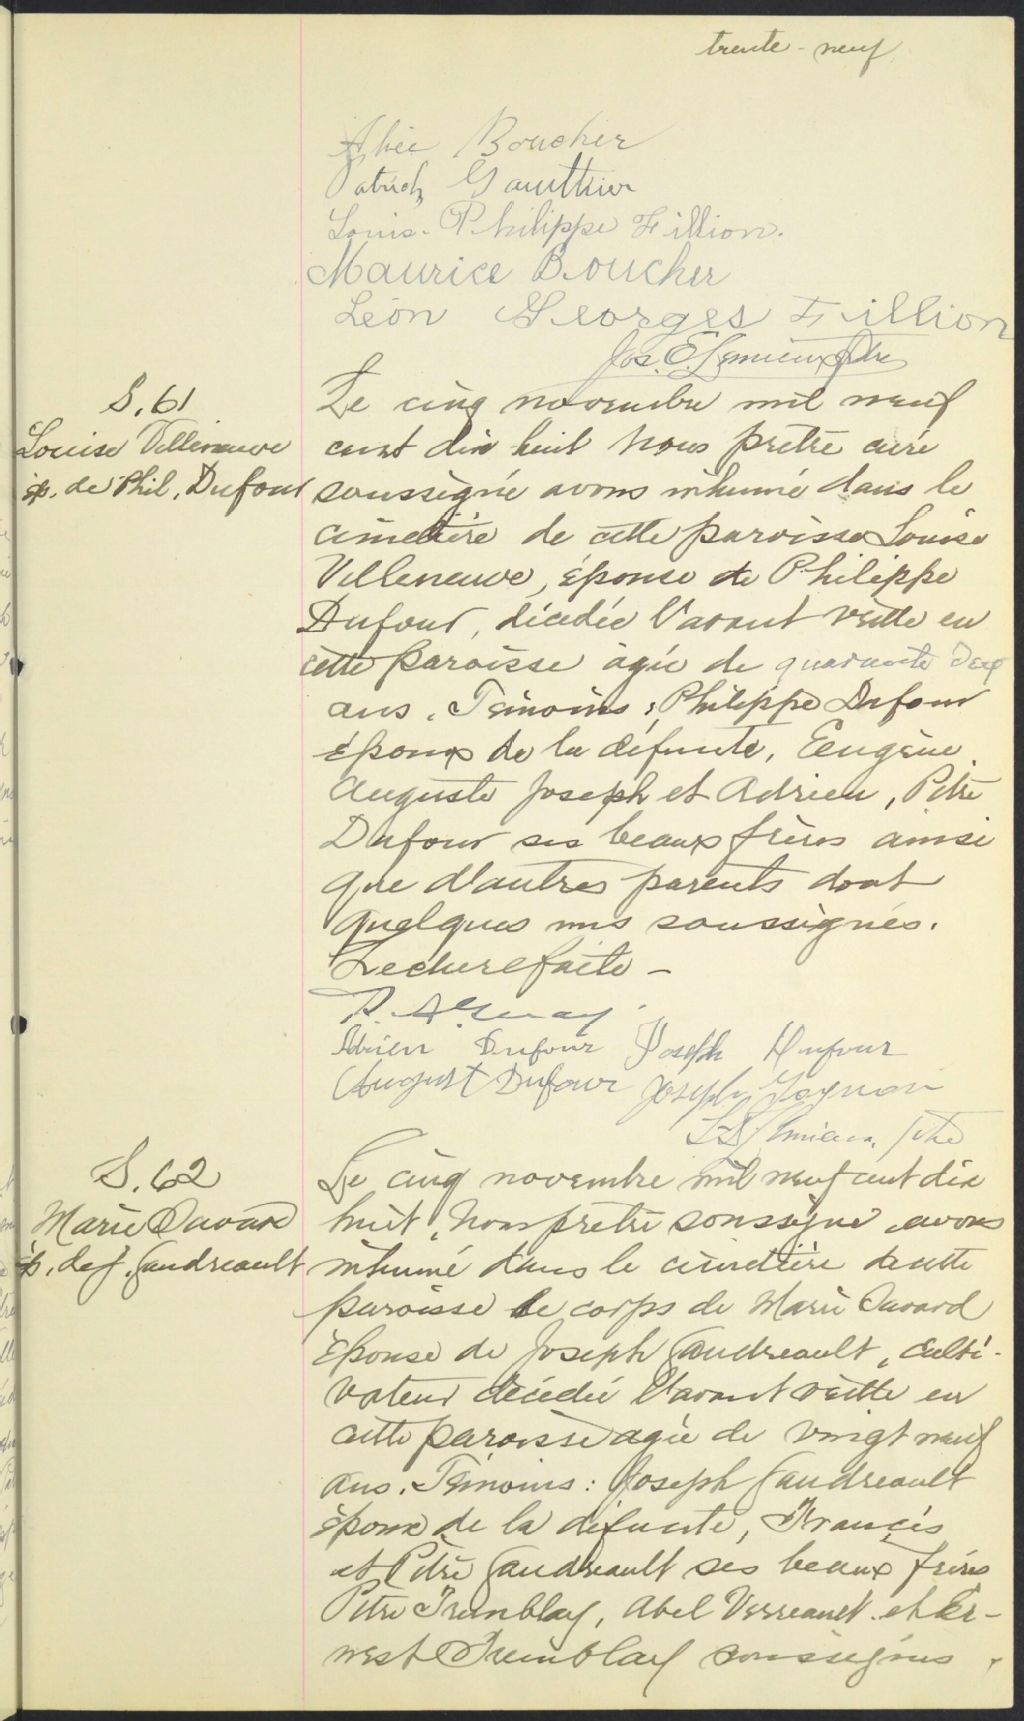 trente-neuf
Boucher
Patrick Gautthier
Louis-Philippe Fillion.
Maurice Boucher
Léon Georges Fillion
Jos. E. Lemieux Ptre
S. 61
Louise Villeneuve
ép. de Phil. Dufour
Le cinq novembre mil neuf
cent dix huit nous prêtre curé
soussigné avons inhumé dans le
cimetière de cette paroisse Louise
Villeneuve, épouse de Philippe
Dufour, décédée l'avant veille en
cette paroisse agée de quarante deux
ans. Témoins: Philippe Dufour
époux de la défunte, Eugène
Auguste Joseph et Adrien, Pitre
Dufour ses beaux frères ainsi
que d'autres parents dont
quelques uns soussignés.
Lecture faite —
Adrien Dufour Joseph Dufour
August Dufour Joseph Gagnon
Lemieux Ptre
S. 62
Marie Savard
ép. de J. Gaudreault
Le cinq novembre mil neuf cent dix
huit, nous prêtre soussigné avons
inhumé dans le cimetière de cette
paroisse le corps de Marie Savard
épouse de Joseph Gaudreault, culti-
vateur décédée l'avant veille en
cette paroisse agée de vingt neuf
ans. Témoins: Joseph Gaudreault
époux de la défunte, François
et Pitre Gaudreault ses beaux frères
Pitre Tremblay, Abel Verreault et Er-
nest Tremblay soussignés.